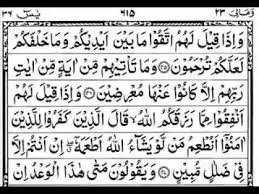 وَمَالِيَ ٢٣ ٦١٥ يٰسٓ ٣٦
وَاِذَا قِيْلَ لَهُمُ اتَّقُوْا مَا بَيْنَ اَيْدِيْكُمْ وَمَا خَلْفَكُمْ
لَعَلَّكُمْ تُرْحَمُوْنَ ﴿٤٥﴾ وَمَا تَاْتِيْهِمْ مِّنْ اٰيَةٍ مِّنْ اٰيٰتِ
رَبِّهِمْ اِلَّا كَانُوْا عَنْهَا مُعْرِضِيْنَ ﴿٤٦﴾ وَاِذَا قِيْلَ لَهُمْ
اَنْفِقُوْا مِمَّا رَزَقَكُمُ اللّٰهُ قَالَ الَّذِيْنَ كَفَرُوْا لِلَّذِيْنَ
اٰمَنُوْٓا اَنُطْعِمُ مَنْ لَّوْ يَشَآءُ اللّٰهُ اَطْعَمَهٗٓ اِنْ اَنْتُمْ اِلَّا
فِيْ ضَلٰلٍ مُّبِيْنٍ ﴿٤٧﴾ وَيَقُوْلُوْنَ مَتٰى هٰذَا الْوَعْدُ اِنْ